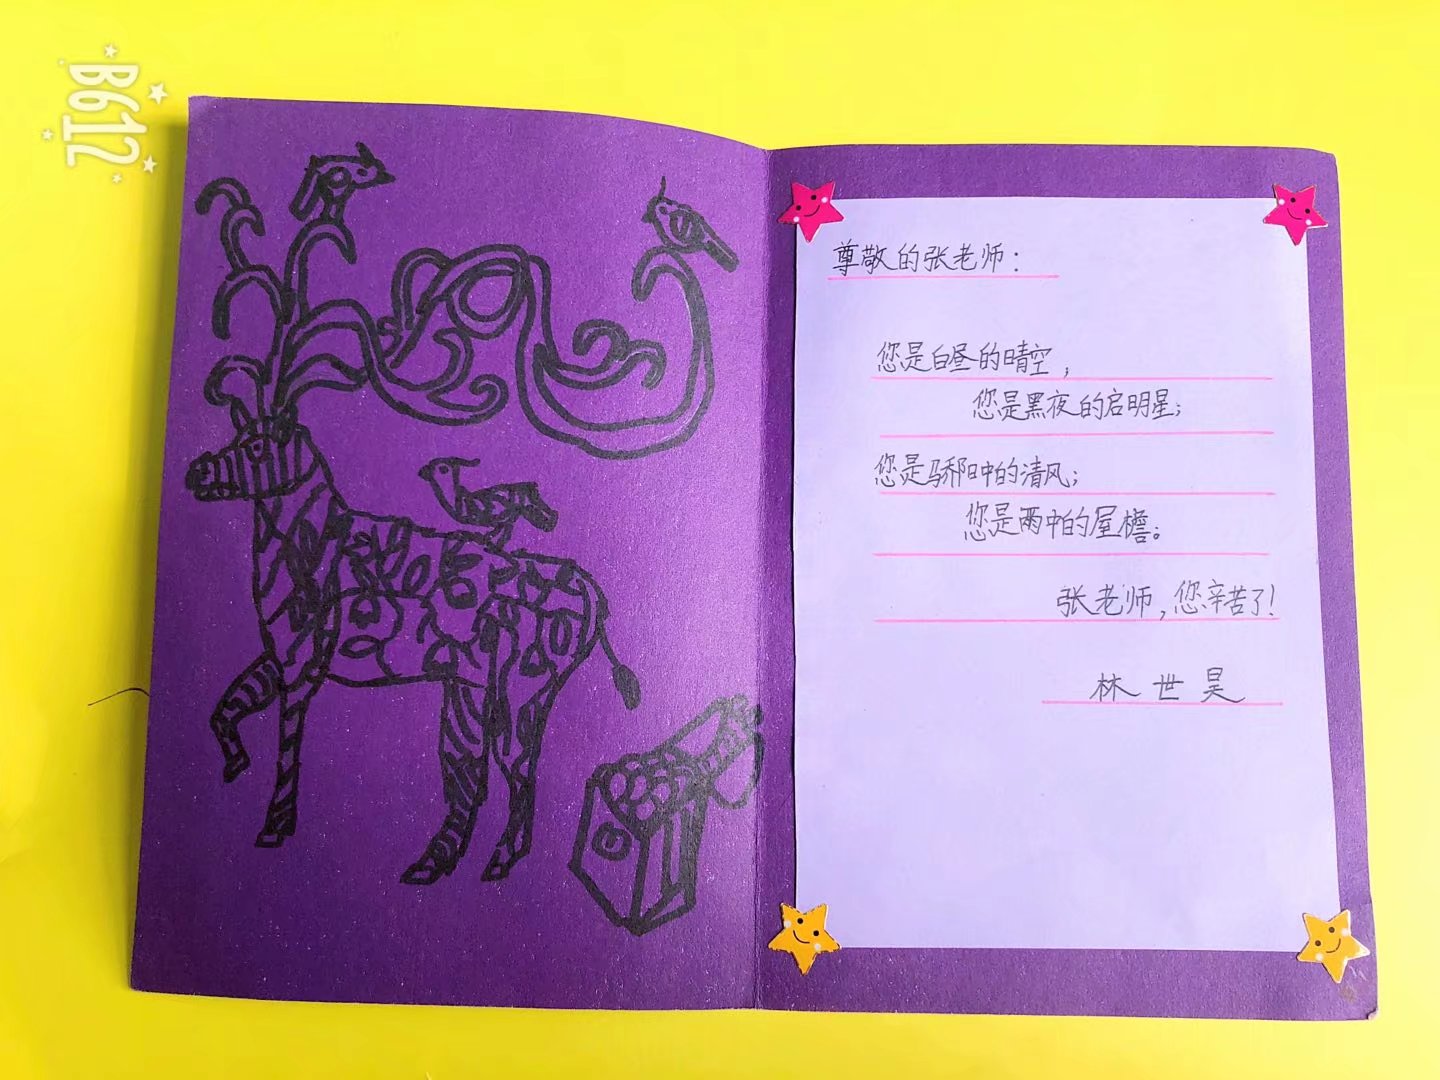 B612
尊敬的张老师：
您是白昼的晴空，
您是黑夜的启明星；
您是骄阳中的清风；
您是雨中的屋檐。
张老师，您辛苦了！
林世昊